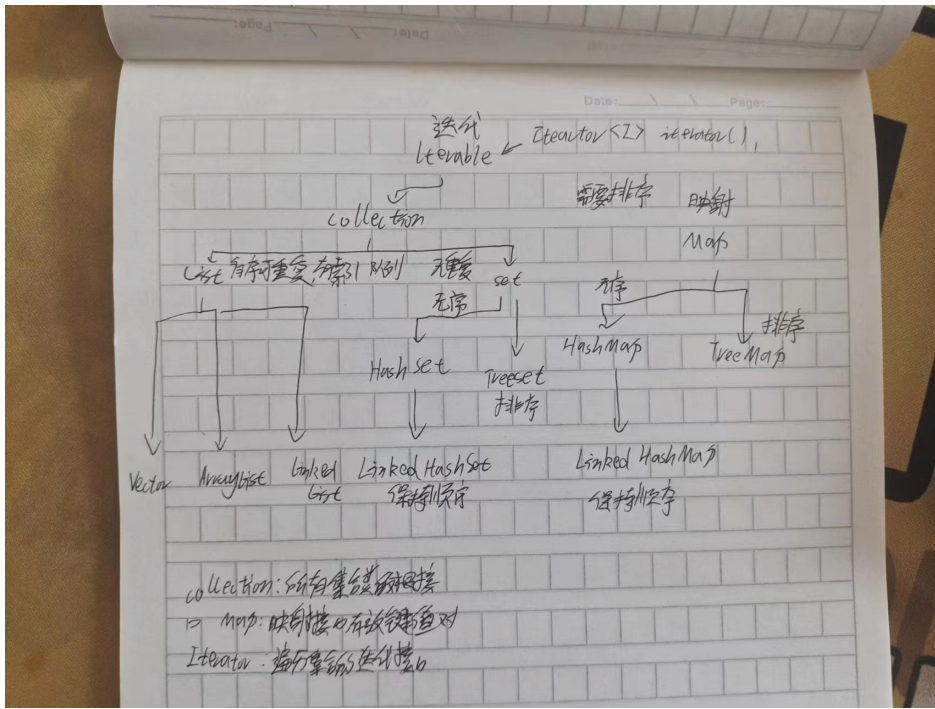 Date: Page:
迭代
Iterable ← Iteactor<I> iterator(),
Collection
需要排序 映射
Map
List 有序可重复,有索引 队列 无重复 set
无序
无序
HashSet
Treeset
排序
HashMap
TreeMap 排序
Vector ArrayList Linked List
Linked HashSet
保持顺序
Linked HashMap
保持顺序
collection: 所有集合类的根接
口 Map: 映射接口存放键值对
Iterator: 遍历集合的迭代接口